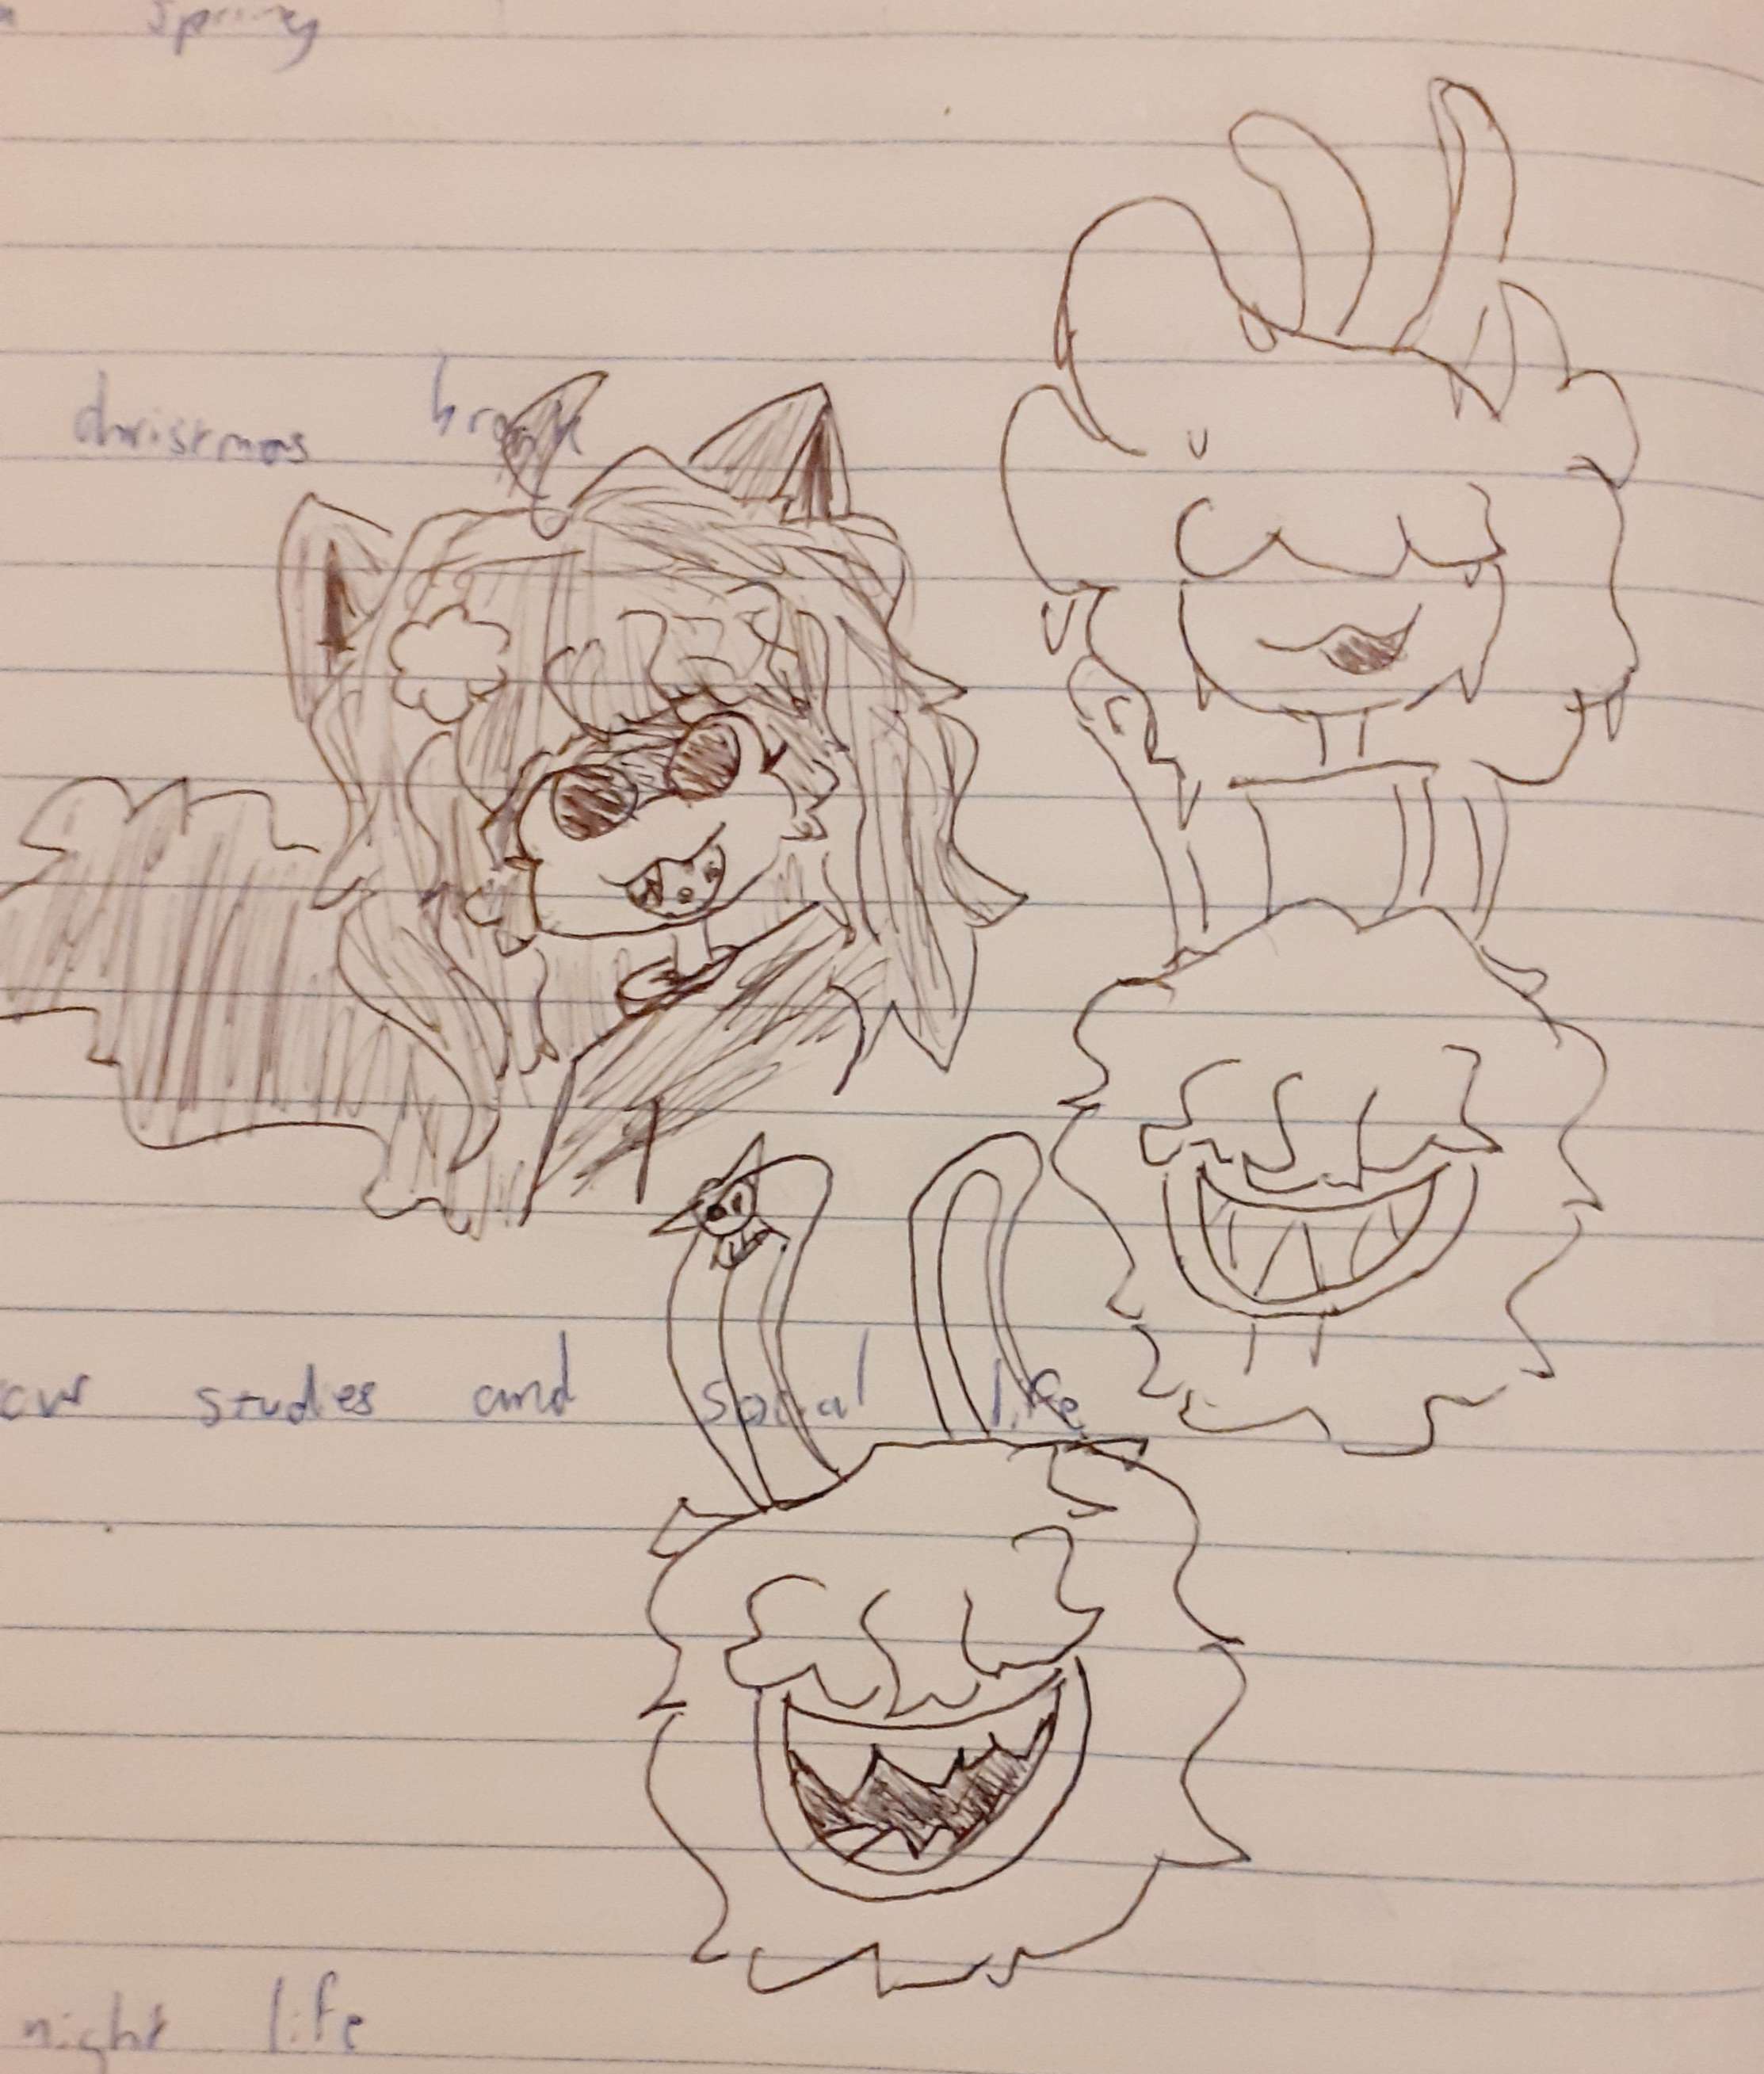 spring
christmas break
studies and social life
night life